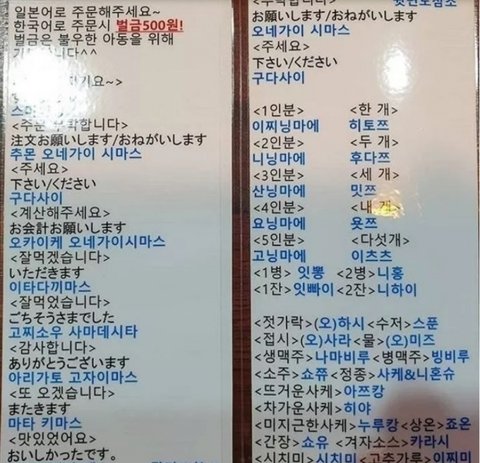 일본어로 주문해주세요~
한국어로 주문시 벌금500원!
벌금은 불우한 아동을 위해
니다^^
기요~>
<주문 부탁합니다>
注文お願いします/おねがいします
추몬 오네가이 시마스
<주세요>
下さい/ください
구다사이
<계산해주세요>
お会計お願いします
오카이케 오네가이시마스
<잘먹겠습니다>
いただきます
이타다끼마스
<잘먹었습니다>
ごちそうさまでした
고찌소우 사마데시타
<감사합니다>
ありがとうございます
아리가토 고자이마스
<또 오겠습니다>
またきます
마타 키마스
<맛있었어요>
おいしかったです。
お願いします/おねがいします
오네가이 시마스
<주세요>
下さい/ください
구다사이
<1인분> <한 개>
이찌닝마에 히토쯔
<2인분> <두 개>
니닝마에 후다쯔
<3인분> <세 개>
산닝마에 밋쯔
<4인분> <내 개>
요닝마에 욧쯔
<5인분> <다섯개>
고닝마에 이츠츠
<1병> 잇뽕 <2병> 니홍
<1잔> 잇빠이 <2잔> 니하이
<젓가락> (오)하시 <수저> 스푼
<접시> (오)사라 <물> (오)미즈
<생맥주> 나마비루 <병맥주> 빙비루
<소주> 쇼쮸 <정종> 사케&니혼슈
<뜨거운사케> 아쯔캉
<차가운사케> 히야
<미지근한사케> 누루캉 <상온> 죠온
<간장> 쇼유 <겨자소스> 카라시
<시치미> 시치미 <고추가루> 이찌미